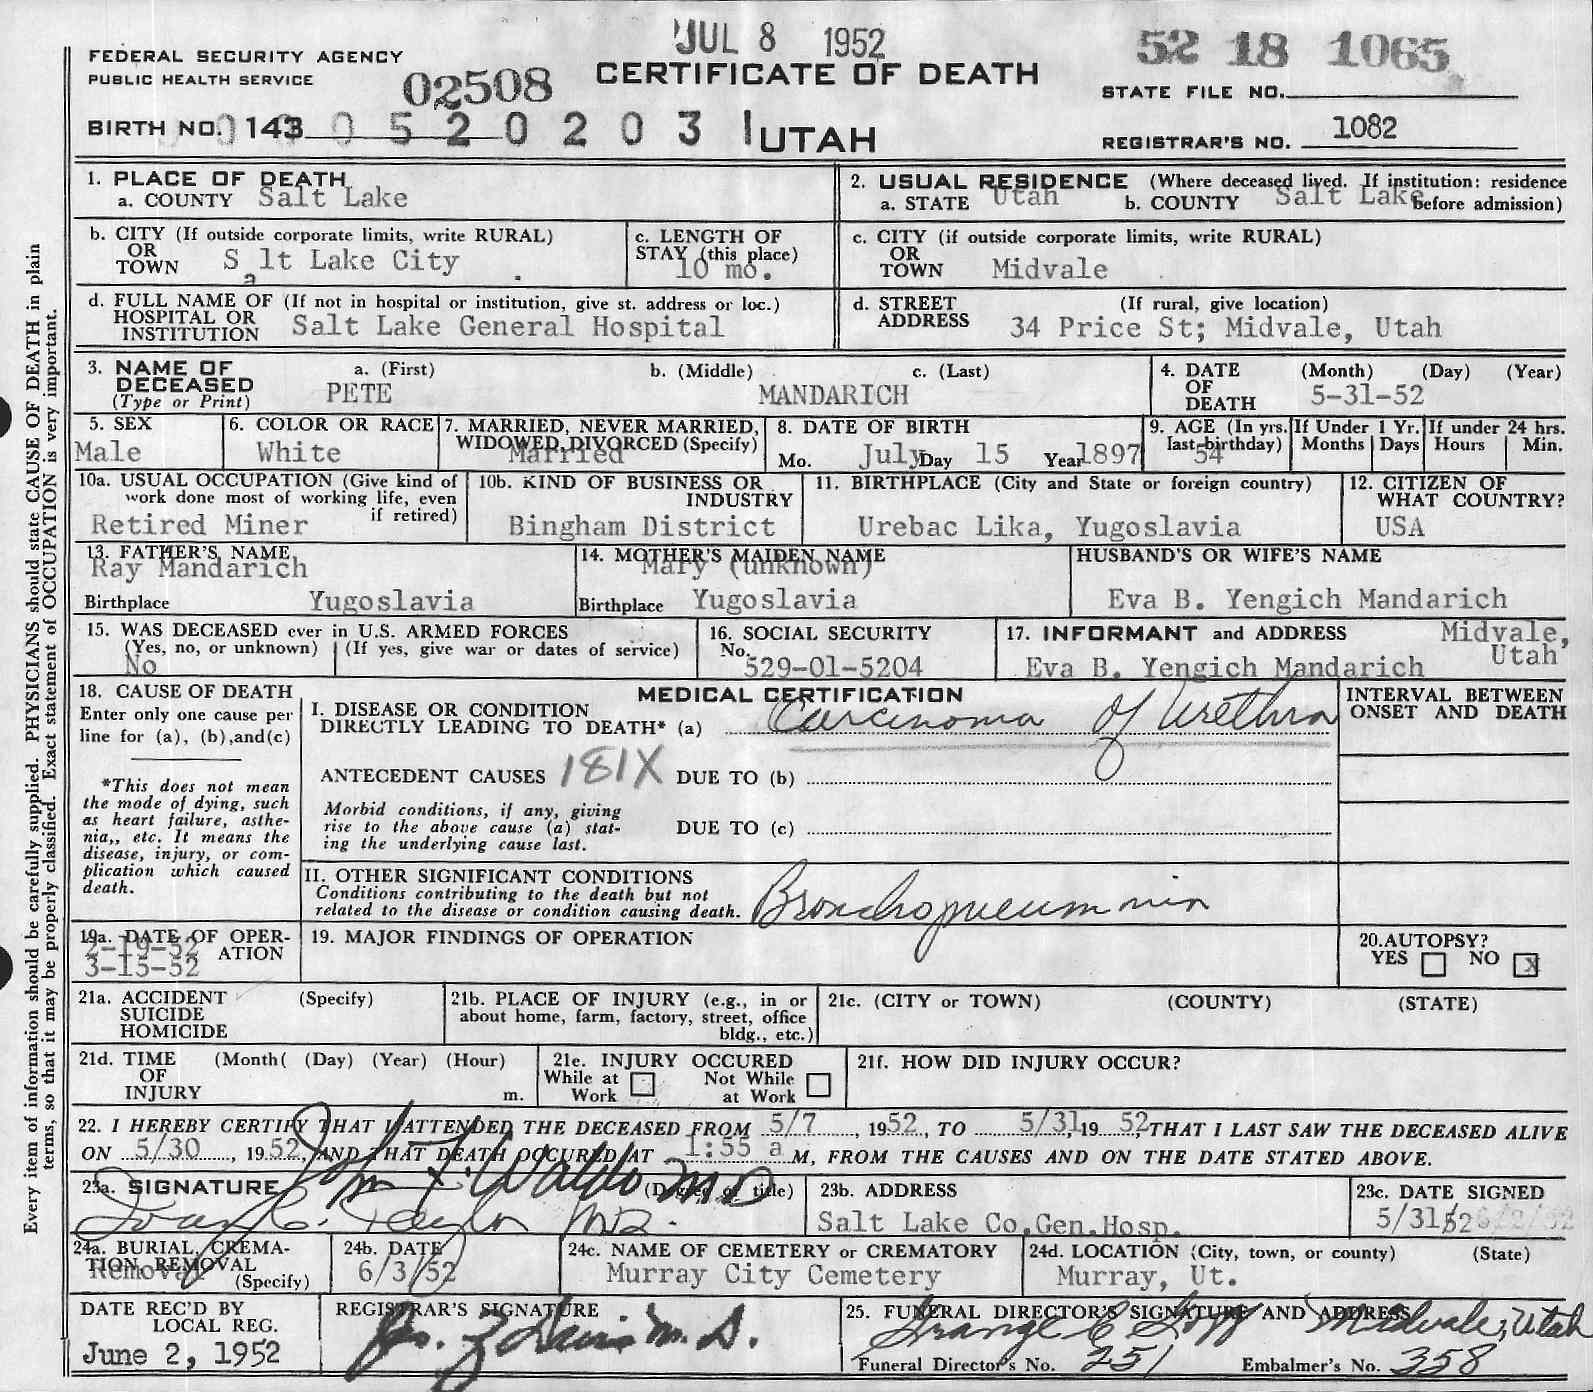 JUL 8 1952
52 18 1065
FEDERAL SECURITY AGENCY
PUBLIC HEALTH SERVICE
02508
CERTIFICATE OF DEATH
STATE FILE NO.
BIRTH NO. 143 0 5 2 0 2 0 3
UTAH
REGISTRAR'S NO. 1082
Every item of information should be carefully supplied. PHYSICIANS should state CAUSE OF DEATH in plain
terms, so that it may be properly classified. Exact statement of OCCUPATION is very important.
1. PLACE OF DEATH
a. COUNTY Salt Lake
2. USUAL RESIDENCE (Where deceased lived. If institution: residence
a. STATE Utah b. COUNTY Salt Lake before admission)
b. CITY (If outside corporate limits, write RURAL)
OR
TOWN Salt Lake City
c. LENGTH OF
STAY (this place)
10 mo.
c. CITY (if outside corporate limits, write RURAL)
OR
TOWN Midvale
d. FULL NAME OF (If not in hospital or institution, give st. address or loc.)
HOSPITAL OR
INSTITUTION Salt Lake General Hospital
d. STREET (If rural, give location)
ADDRESS 34 Price St; Midvale, Utah
3. NAME OF a. (First) b. (Middle) c. (Last)
DECEASED
(Type or Print) PETE MANDARICH
4. DATE (Month) (Day) (Year)
OF
DEATH 5-31-52
5. SEX
Male
6. COLOR OR RACE
White
7. MARRIED, NEVER MARRIED,
WIDOWED, DIVORCED (Specify)
Married
8. DATE OF BIRTH
Mo. July Day 15 Year 1897
9. AGE (In yrs.
last birthday)
54
If Under 1 Yr.
Months Days
If under 24 hrs.
Hours Min.
10a. USUAL OCCUPATION (Give kind of
work done most of working life, even
if retired)
Retired Miner
10b. KIND OF BUSINESS OR
INDUSTRY
Bingham District
11. BIRTHPLACE (City and State or foreign country)
Urebac Lika, Yugoslavia
12. CITIZEN OF
WHAT COUNTRY?
USA
13. FATHER'S NAME
Ray Mandarich
Birthplace Yugoslavia
14. MOTHER'S MAIDEN NAME
Mary (unknown)
Birthplace Yugoslavia
HUSBAND'S OR WIFE'S NAME
Eva B. Yengich Mandarich
15. WAS DECEASED ever in U.S. ARMED FORCES
(Yes, no, or unknown) (If yes, give war or dates of service)
No
16. SOCIAL SECURITY
No. 529-01-5204
17. INFORMANT and ADDRESS Midvale,
Utah
Eva B. Yengich Mandarich
18. CAUSE OF DEATH
Enter only one cause per
line for (a), (b),and(c)
*This does not mean
the mode of dying, such
as heart failure, asthe-
nia,, etc. It means the
disease, injury, or com-
plication which caused
death.
MEDICAL CERTIFICATION
I. DISEASE OR CONDITION
DIRECTLY LEADING TO DEATH* (a) Carcinoma of Urethra
ANTECEDENT CAUSES 181X DUE TO (b)
Morbid conditions, if any, giving
rise to the above cause (a) stat-
ing the underlying cause last.
DUE TO (c)
II. OTHER SIGNIFICANT CONDITIONS
Conditions contributing to the death but not
related to the disease or condition causing death. Bronchopneumonia
INTERVAL BETWEEN
ONSET AND DEATH
19a. DATE OF OPER-
ATION
2-19-52
3-15-52
19. MAJOR FINDINGS OF OPERATION
20.AUTOPSY?
YES NO x
21a. ACCIDENT (Specify)
SUICIDE
HOMICIDE
21b. PLACE OF INJURY (e.g., in or
about home, farm, factory, street, office
bldg., etc.)
21c. (CITY or TOWN) (COUNTY) (STATE)
21d. TIME (Month( (Day) (Year) (Hour)
OF
INJURY m.
21e. INJURY OCCURED
While at Not While
Work at Work
21f. HOW DID INJURY OCCUR?
22. I HEREBY CERTIFY THAT I ATTENDED THE DECEASED FROM 5/7, 1952, TO 5/31, 1952, THAT I LAST SAW THE DECEASED ALIVE
ON 5/30, 1952, AND THAT DEATH OCCURED AT 1:55 a M, FROM THE CAUSES AND ON THE DATE STATED ABOVE.
John F. Waldo MD
23a. SIGNATURE (Degree or title)
Taylor MD.
23b. ADDRESS
Salt Lake Co.Gen.Hosp.
23c. DATE SIGNED
5/31/52 6/2/52
24a. BURIAL, CREMA-
TION, REMOVAL
(Specify)
Removal
24b. DATE
6/3/52
24c. NAME OF CEMETERY or CREMATORY
Murray City Cemetery
24d. LOCATION (City, town, or county) (State)
Murray, Ut.
DATE REC'D BY
LOCAL REG.
June 2, 1952
REGISTRAR'S SIGNATURE
Davis M.D.
25. FUNERAL DIRECTOR'S SIGNATURE AND ADDRESS
Goff Midvale, Utah
Funeral Director's No. 251 Embalmer's No. 358